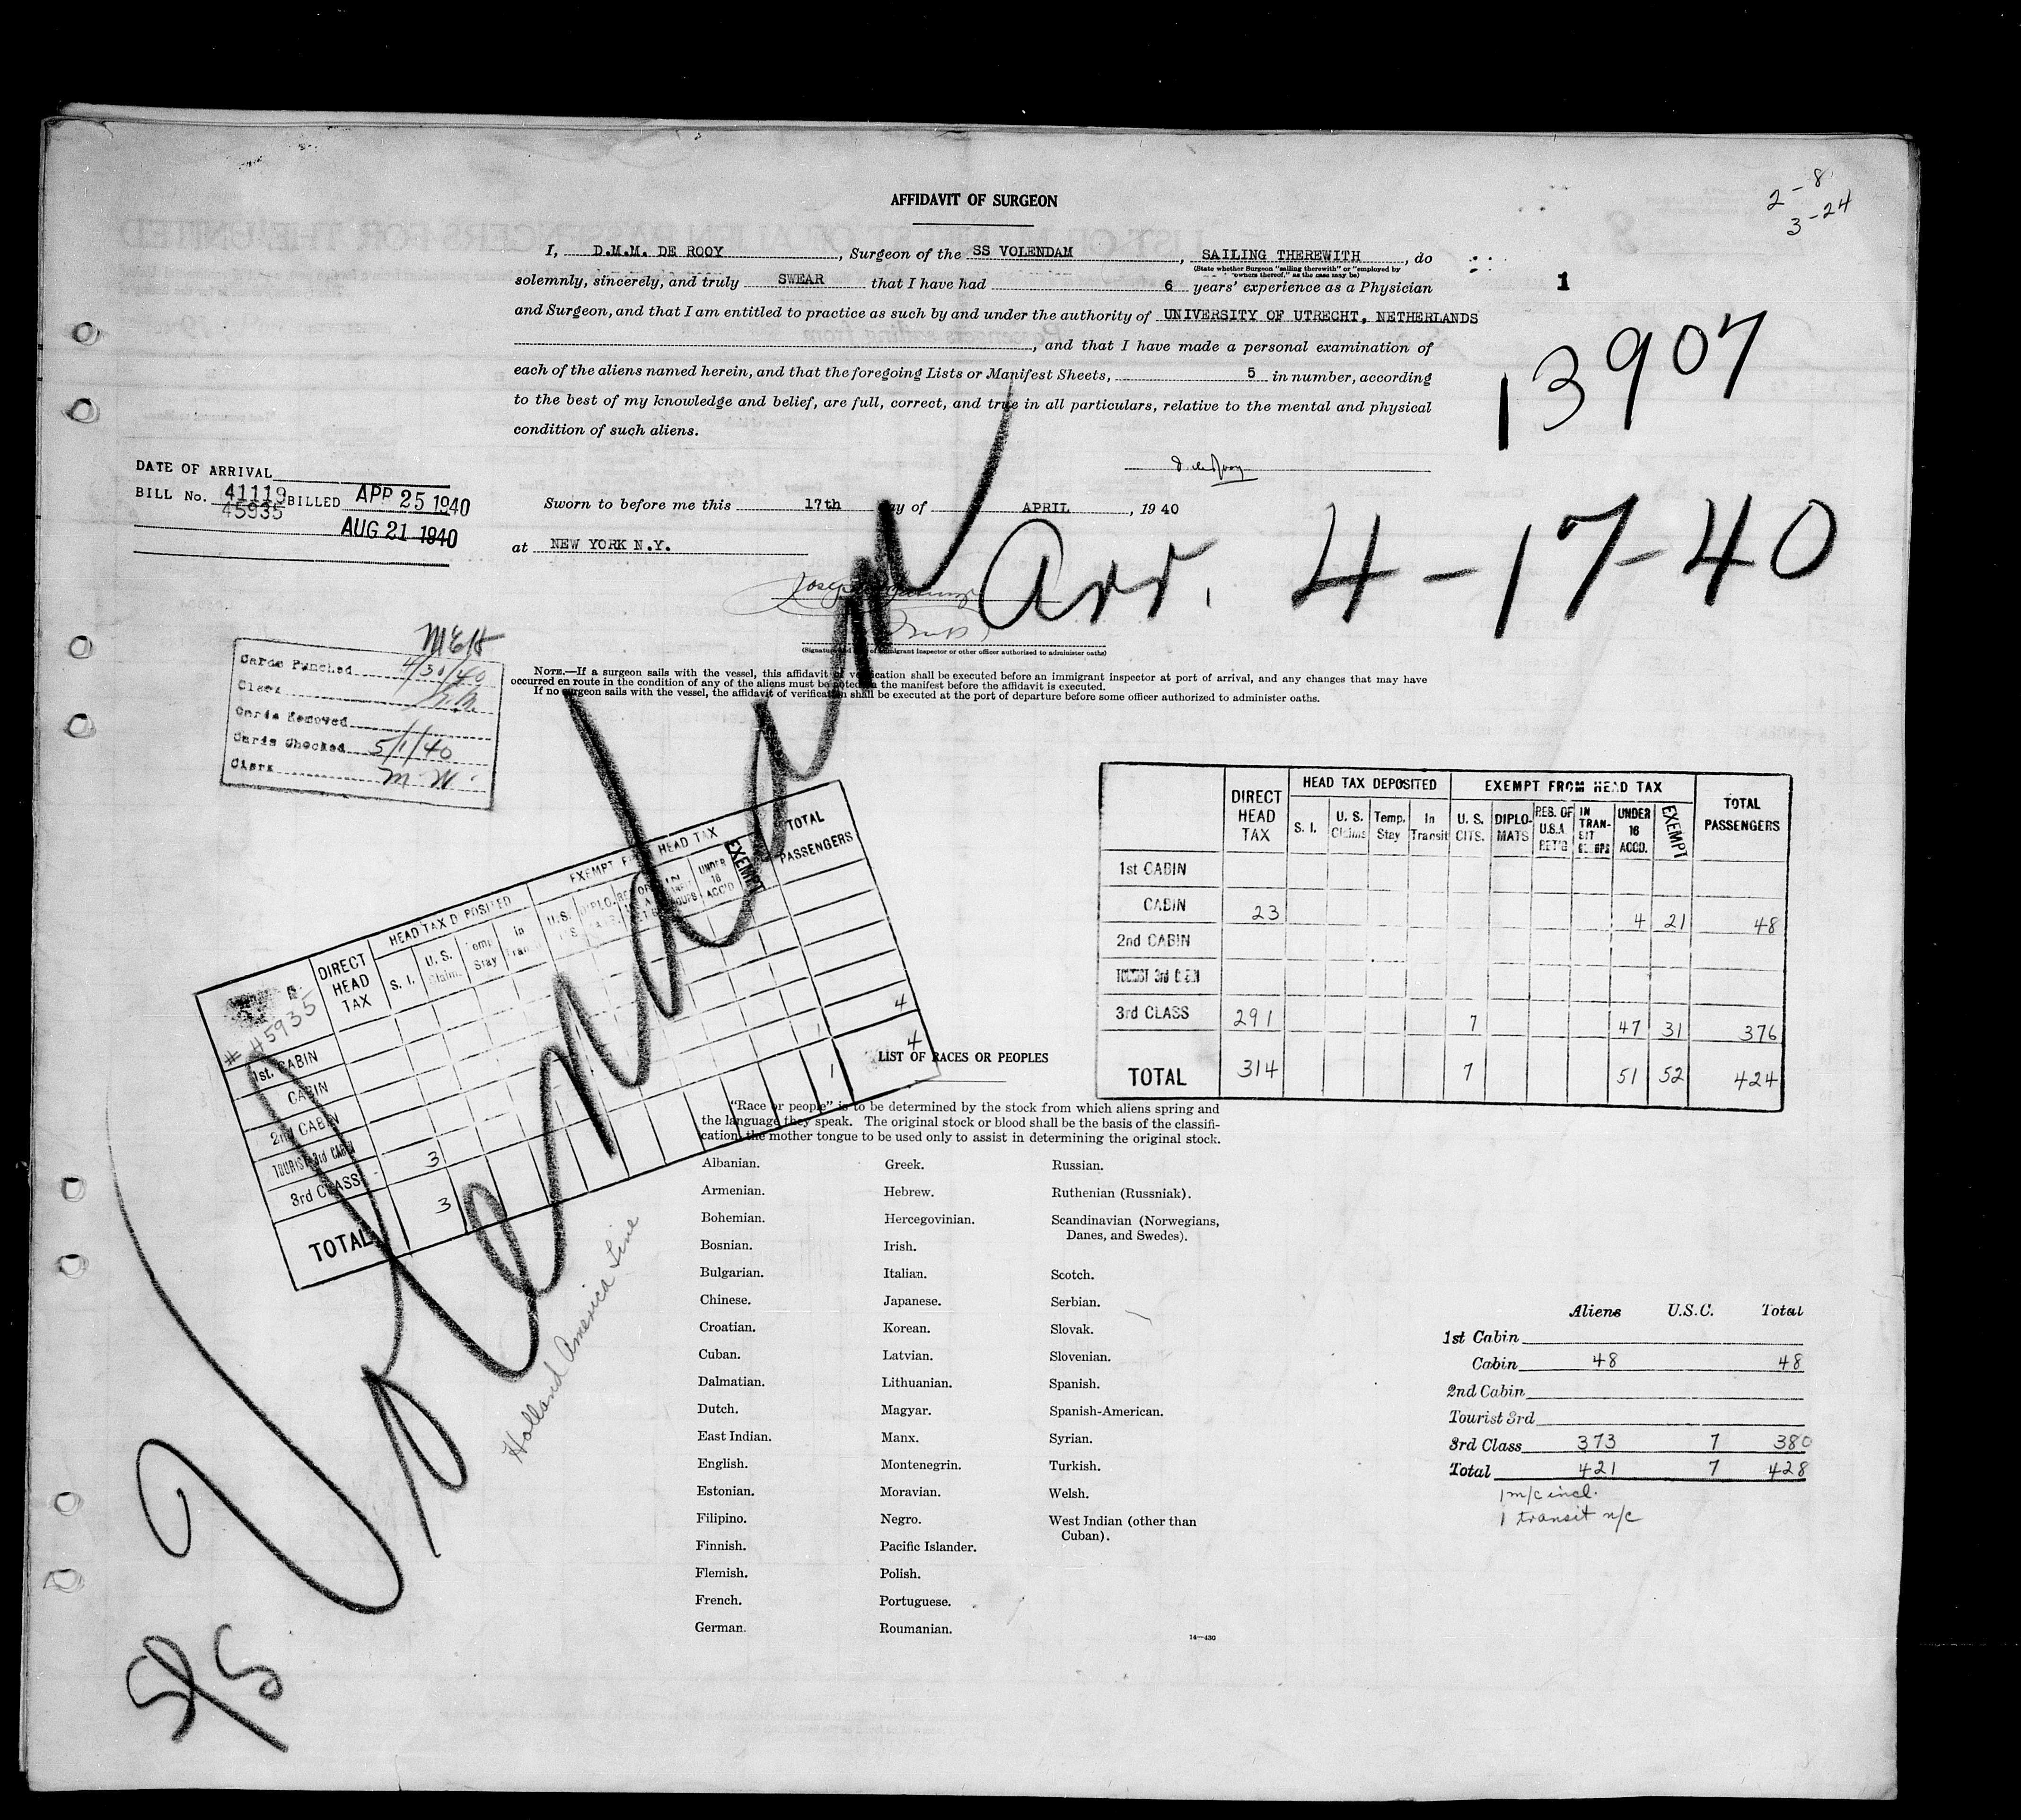 2-8
3-24
AFFIDAVIT OF SURGEON
I, D.M.M. DE ROOY, Surgeon of the SS VOLENDAM, SAILING THEREWITH, do
(State whether Surgeon "sailing therewith" or "employed by
owners thereof," as the case may be)
solemnly, sincerely, and truly SWEAR that I have had 6 years' experience as a Physician
1
and Surgeon, and that I am entitled to practice as such by and under the authority of UNIVERSITY OF UTRECHT, NETHERLANDS
, and that I have made a personal examination of
13907
each of the aliens named herein, and that the foregoing Lists or Manifest Sheets, 5 in number, according
to the best of my knowledge and belief, are full, correct, and true in all particulars, relative to the mental and physical
condition of such aliens.
DATE OF ARRIVAL
BILL No. 41119 BILLED APR 25 1940
45935
AUG 21 1940
Sworn to before me this 17th day of APRIL, 1940
at NEW YORK N.Y.
Arr. 4-17-40
Joseph
(Signature and of immigrant inspector or other officer authorized to administer oaths)
NOTE.—If a surgeon sails with the vessel, this affidavit of verification shall be executed before an immigrant inspector at port of arrival, and any changes that may have
occurred en route in the condition of any of the aliens must be noted on the manifest before the affidavit is executed.
If no surgeon sails with the vessel, the affidavit of verification shall be executed at the port of departure before some officer authorized to administer oaths.
MEH
Cards Punched 4/30/40
Clerk
Cards Removed
Cards Checked 5/1/40
Clerk M.W.
DIRECT HEAD TAX HEAD TAX DEPOSITED EXEMPT FROM HEAD TAX TOTAL PASSENGERS
S. I. U. S. Claims Temp. Stay In Transit U. S. CITS. DIPLO-MATS RES. OF U.S.A. RET'G IN TRAN-SIT GROUPS UNDER 16 ACCD. EXEMPT
1st CABIN
CABIN 23 4 21 48
2nd CABIN
TOURIST 3rd CABIN
3rd CLASS 291 7 47 31 376
TOTAL 314 7 51 52 424
# 45935
DIRECT HEAD TAX HEAD TAX DEPOSITED EXEMPT FROM HEAD TAX TOTAL PASSENGERS
S. I. U. S. Claim. Temp Stay In Transit U.S. DIPLO. UNDER 16 ACC'D EXEMPT
1st. CABIN
CABIN
2nd CABIN
TOURIST 3rd CABIN
3rd CLASS 3 1 4
TOTAL 3 1 4
Volendam
Holland America Line
S/S
LIST OF RACES OR PEOPLES
"Race or people" is to be determined by the stock from which aliens spring and
the language they speak. The original stock or blood shall be the basis of the classifi-
cation, the mother tongue to be used only to assist in determining the original stock.
Albanian.
Armenian.
Bohemian.
Bosnian.
Bulgarian.
Chinese.
Croatian.
Cuban.
Dalmatian.
Dutch.
East Indian.
English.
Estonian.
Filipino.
Finnish.
Flemish.
French.
German.
Greek.
Hebrew.
Hercegovinian.
Irish.
Italian.
Japanese.
Korean.
Latvian.
Lithuanian.
Magyar.
Manx.
Montenegrin.
Moravian.
Negro.
Pacific Islander.
Polish.
Portuguese.
Roumanian.
Russian.
Ruthenian (Russniak).
Scandinavian (Norwegians,
Danes, and Swedes).
Scotch.
Serbian.
Slovak.
Slovenian.
Spanish.
Spanish-American.
Syrian.
Turkish.
Welsh.
West Indian (other than
Cuban).
14—430
Aliens U.S.C. Total
1st Cabin
Cabin 48 48
2nd Cabin
Tourist 3rd
3rd Class 373 7 380
Total 421 7 428
1 m/c incl.
1 transit n/c